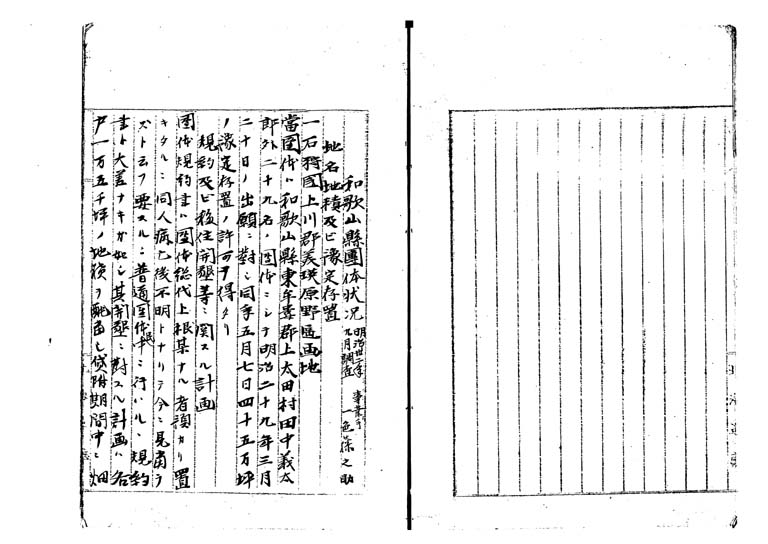 和歌山縣團体状况 明治卅二年九月調査 事業手 一色藤之助
地名地積及ビ豫定存置
一石狩國上川郡美瑛原野區画地
當団体ハ和歌山縣東牟婁郡上太田村田中義太
郎外二十九名ノ団体ニシテ明治二十九年三月
二十日ノ出願ニ對シ同年五月七日四十五万坪
ノ豫定存置ノ許可ヲ得タリ
規約及ビ移住開墾等ニ関スル計画
団体規約書ハ団体総代上根某ナル者預カリ置
キタルニ同人病亡後不明トナリテ今ニ見當ラ
ズト云フ要スルニ普通団体民中ニ行ハルヽ規約
書ト大差ナキガ如シ其開墾ニ對スル計画ハ各
戸一万五千坪ノ地積ヲ配當シ貸附期間中ニ畑